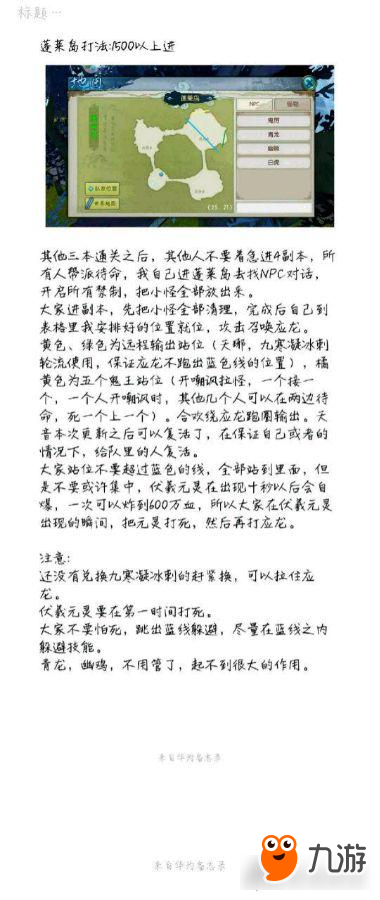 标题…
蓬莱岛打法:1500以上进
地图
蓬莱岛
NPC
青龙
幽鸡
白虎
世界地图
(25, 21)
其他三本通关之后，其他人不要着急进4副本，所
有人帮派待命，我自己进蓬莱岛去找NPC对话，
开启所有禁制，把小怪全部放出来。
大家进副本，先把小怪全部清理，完成后自己到
表格里我安排好的位置就位，攻击召唤应龙。
黄色、绿色为远程输出站位（天哪，九寒凝冰刺
轮流使用，保证应龙不跑出蓝色线的位置），橘
黄色为五个鬼王站位（开嘲讽拉怪，一个接一
个，一个人开嘲讽时，其他几个人可以在两边待
命，死一个上一个）。合欢绕应龙跑圈输出。天
音本次更新之后可以复活了，在保证自己或者的
情况下，给队里的人复活。
大家站位不要超过蓝色的线，全部站到里面，但
是不要或许集中，伏羲元灵在出现十秒以后会自
爆，一次可以炸到600万血，所以大家在伏羲元灵
出现的瞬间，把元灵打死，然后再打应龙。
注意:
还没有兑换九寒凝冰刺的赶紧换，可以拉住应
龙。
伏羲元灵要在第一时间打死。
大家不要怕死，跳出蓝线躲避，尽量在蓝线之内
躲避技能。
青龙，幽鸡，不用管了，起不到很大的作用。
来自华为备忘录
来自华为备忘录
九游